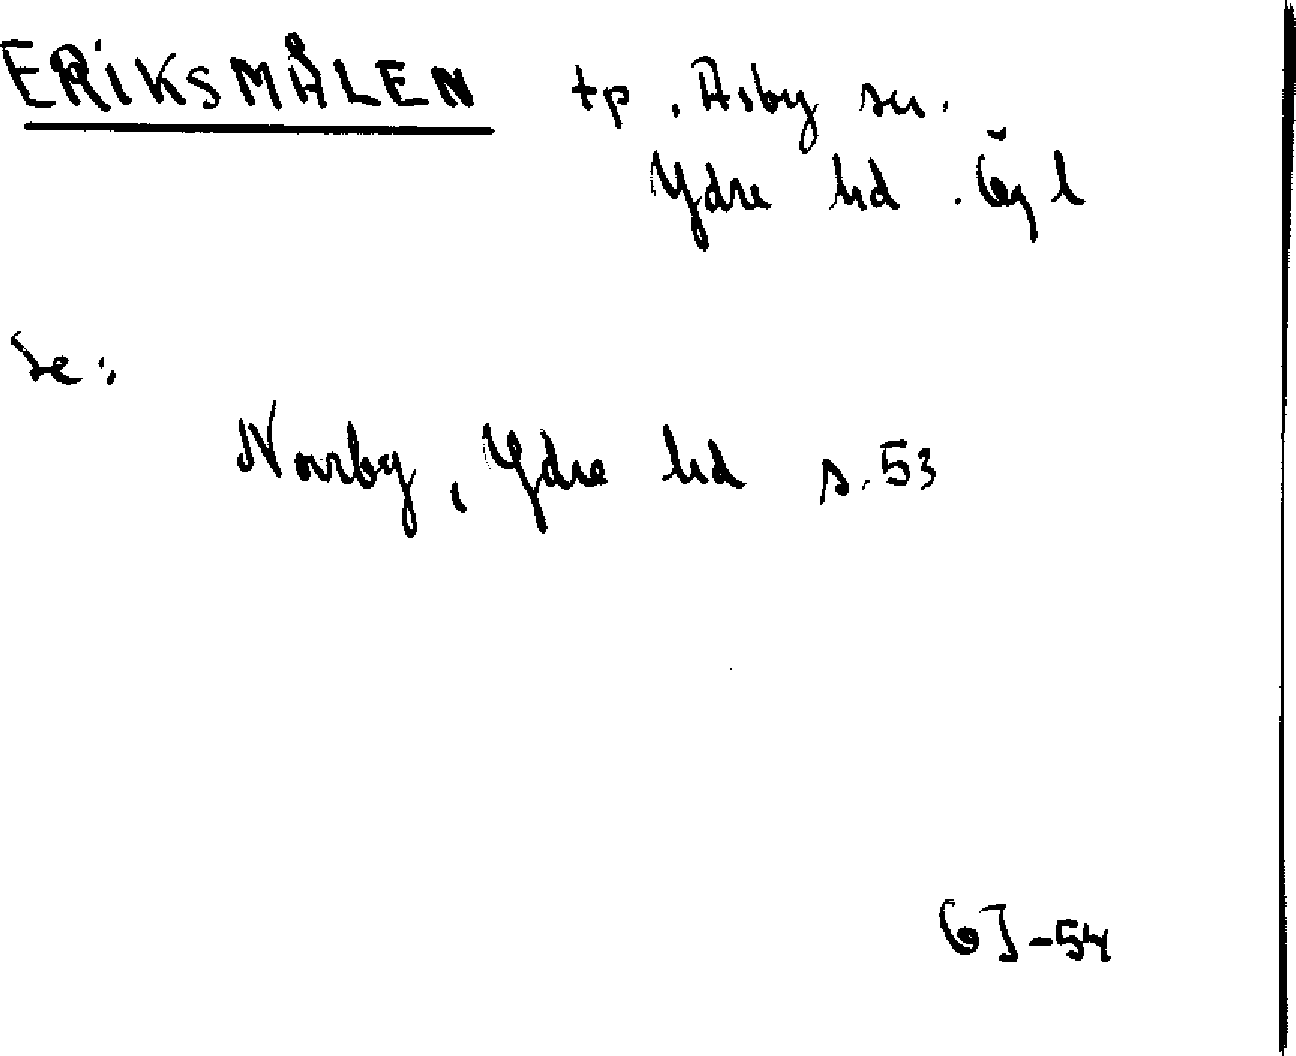 ERIKSMÅLEN tp. Asby sn.
Ydre hd. Ög l
se:
Norrby, Ydre hd s. 53
GJ-54